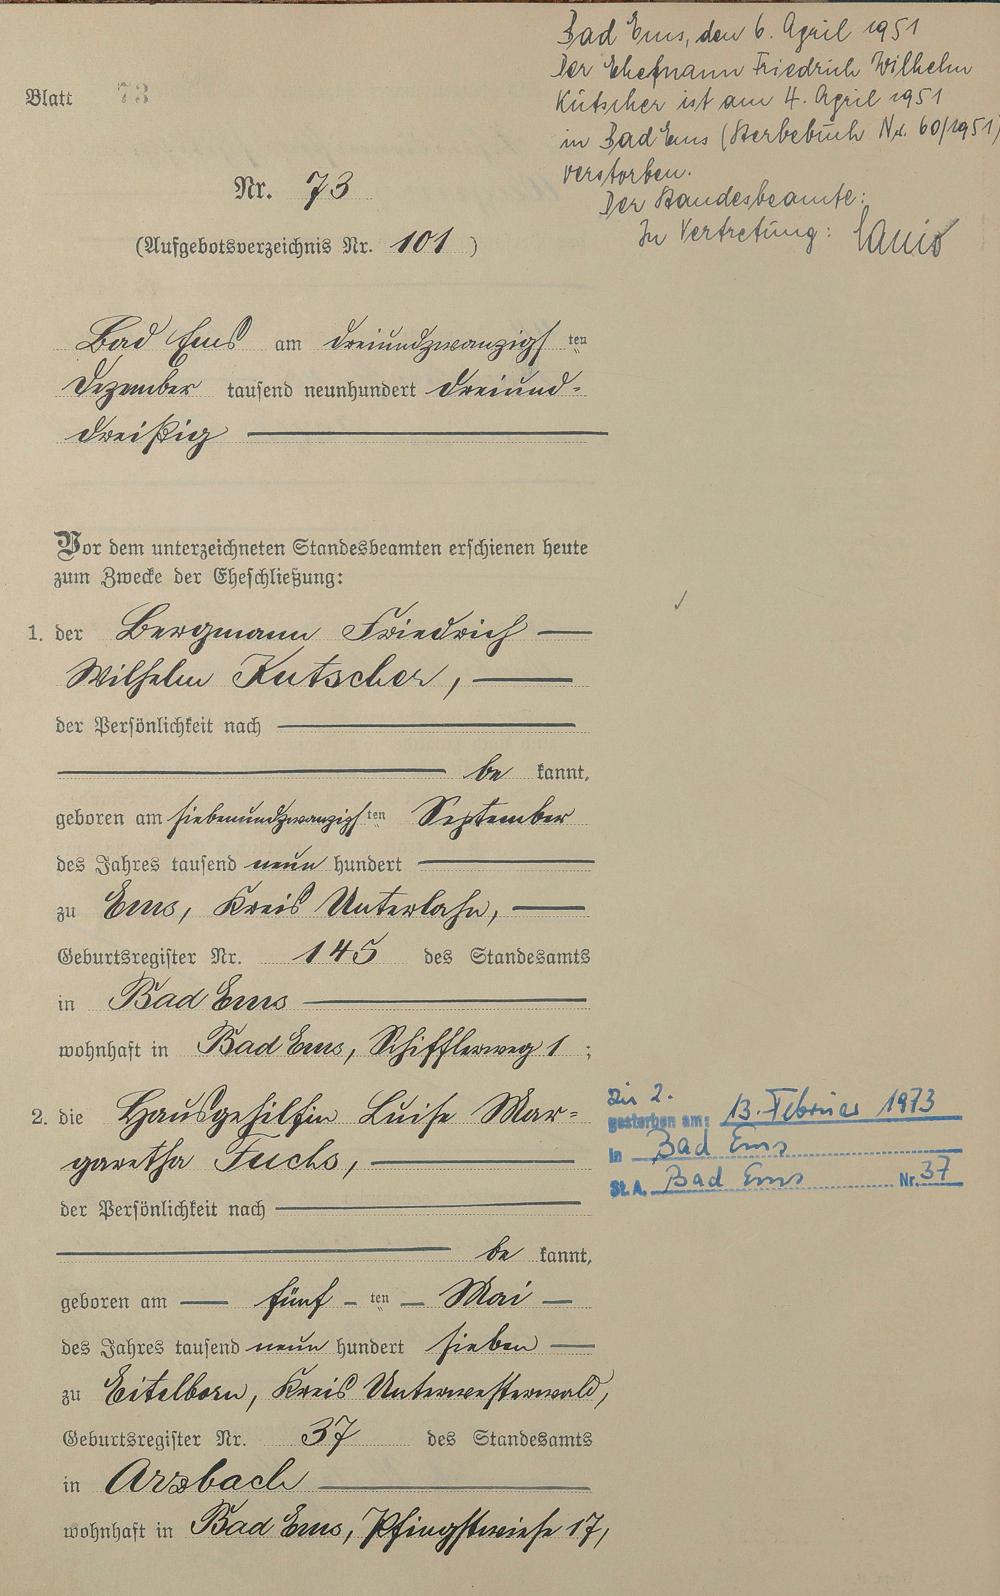 Bad Ems, den 6. April 1951
Der Ehemann Friedrich Wilhelm
Kutscher ist am 4. April 1951
in Bad Ems (Sterbebuch Nr. 60/1951)
verstorben.
Der Standesbeamte:
In Vertretung:
Blatt 73
Nr. 73
(Aufgebotsverzeichnis Nr. 101)
Bad Ems am dreiundzwanzigsten
Dezember tausend neunhundert dreiund-
dreißig
Vor dem unterzeichneten Standesbeamten erschienen heute
zum Zwecke der Eheschließung:
1. der Bergmann Friedrich
Wilhelm Kutscher,
der Persönlichkeit nach
be kannt,
geboren am siebenundzwanzigsten September
des Jahres tausend neun hundert
zu Ems, Kreis Unterlahn,
Geburtsregister Nr. 145 des Standesamts
in Bad Ems
wohnhaft in Bad Ems, Schifflerweg 1 ;
2. die Hausgehilfin Luise Mar-
garetha Fuchs,
der Persönlichkeit nach
be kannt,
geboren am fünf ten Mai
des Jahres tausend neun hundert sieben
zu Eitelborn, Kreis Unterwesterwald,
Geburtsregister Nr. 37 des Standesamts
in Arzbach
wohnhaft in Bad Ems, Pfingstwiese 17,
Zu 2.
gestorben am: 13. Februar 1973
in Bad Ems
St. A. Bad Ems Nr. 37